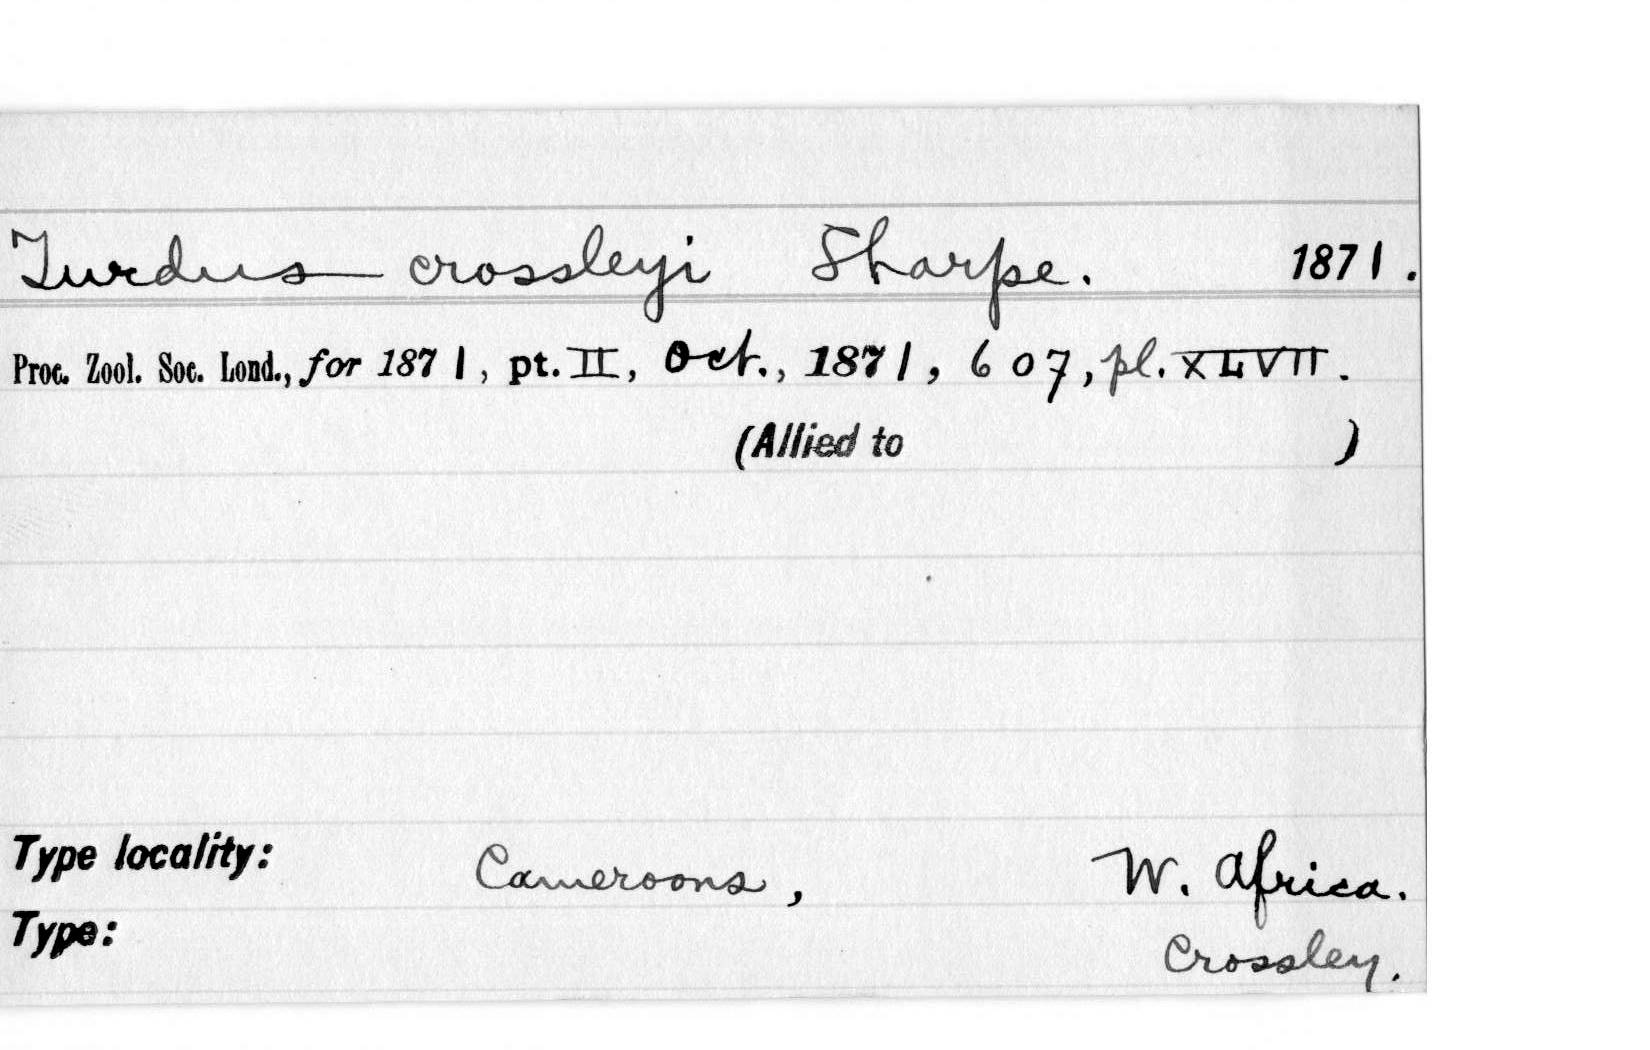 Turdus crossleyi Sharpe. 1871.
Proc. Zool. Soc. Lond., for 1871, pt. II, Oct., 1871, 607, pl. XLVII.
(Allied to )
Type locality: Cameroons, W. Africa.
Type: Crossley.